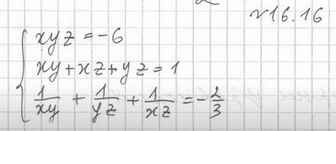 N16.16
xyz = -6
xy + xz + yz = 1
1/xy + 1/yz + 1/xz = -2/3